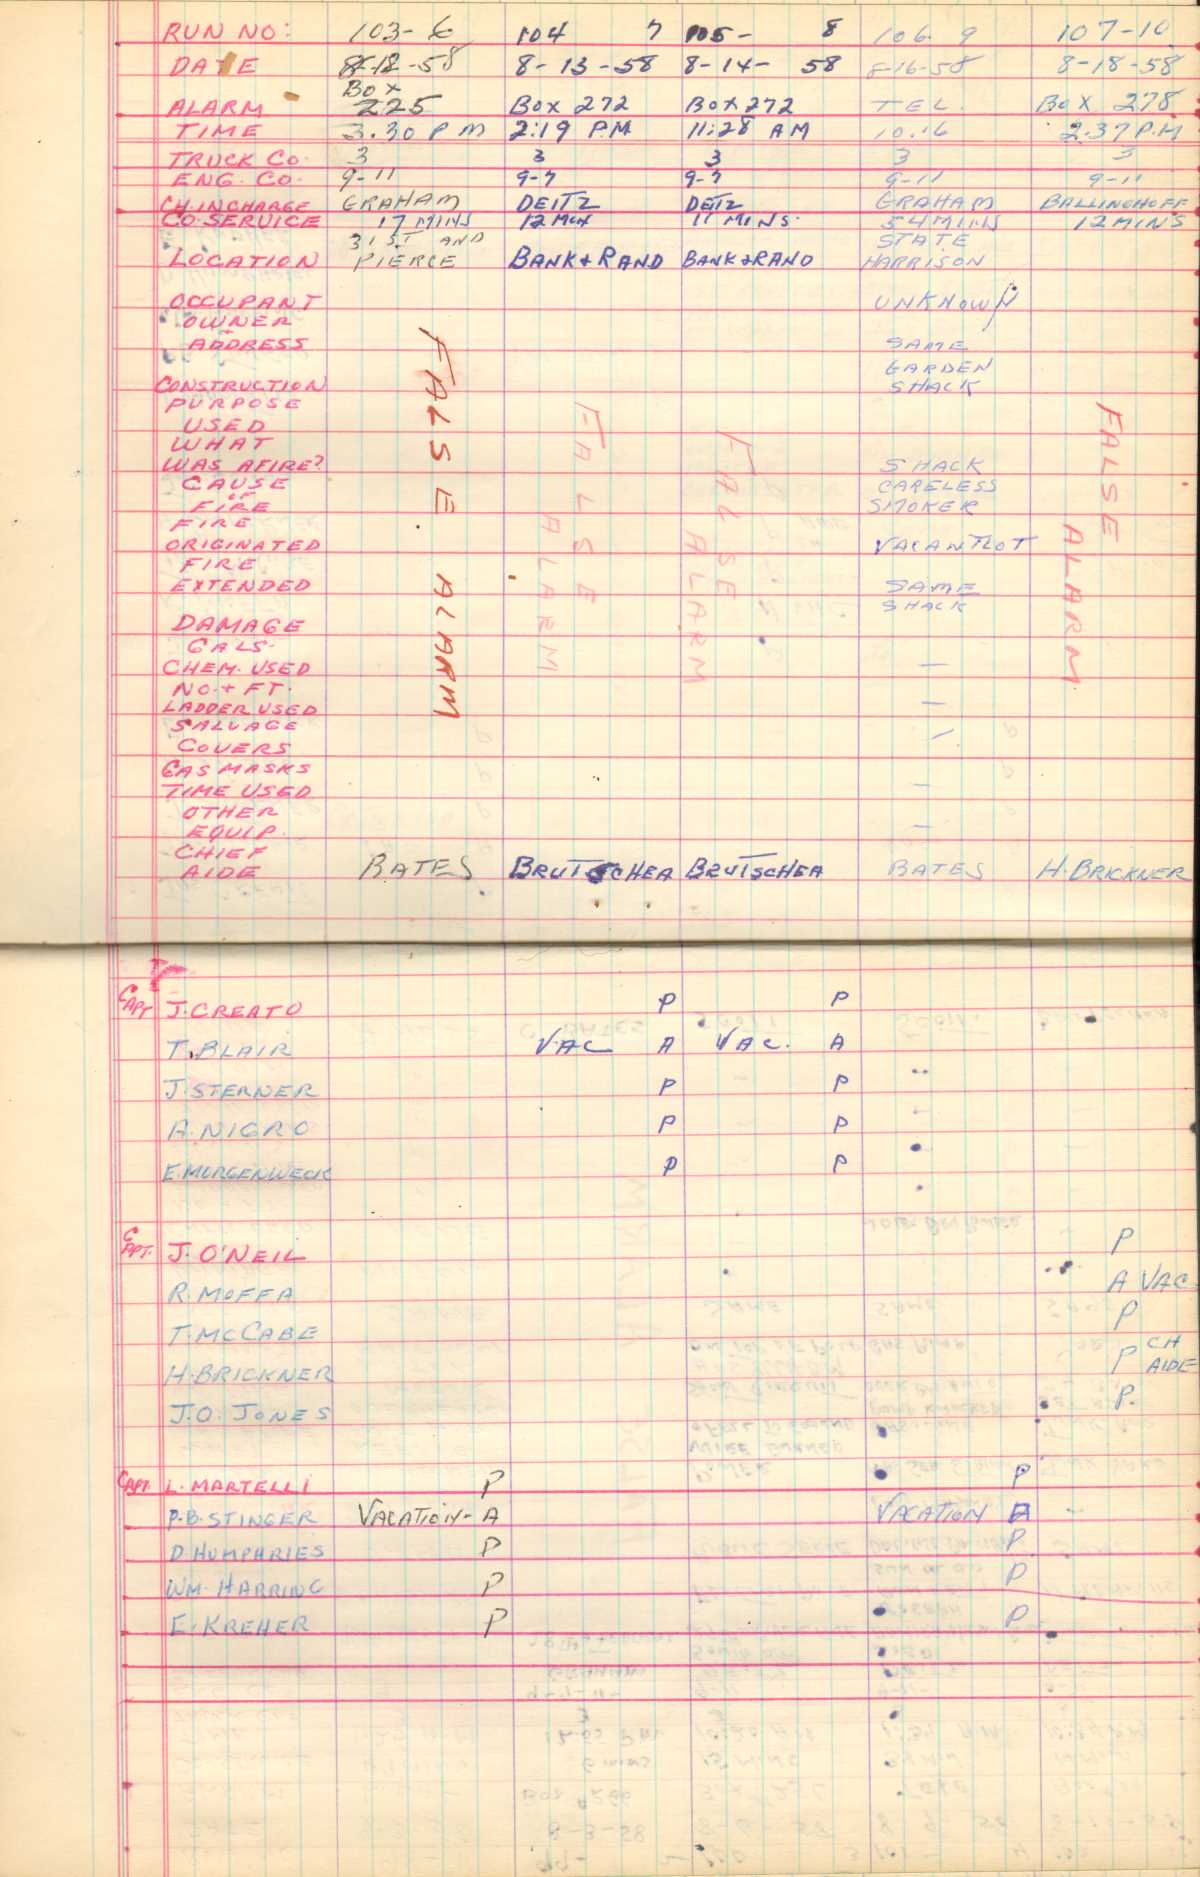 RUN NO: 103-6 104 7 105- 8 106 9 107-10
DATE 8-12-58 8-13-58 8-14-58 8-16-58 8-18-58
ALARM BOX 225 BOX 272 BOX 272 TEL. BOX 278
TIME 3.30 PM 2:19 P.M 11:28 AM 10.16 2.37 P.M
TRUCK CO. 3 3 3 3 3
ENG. CO. 9-11 9-7 9-7 9-11 9-11
CH. INCHARGE GRAHAM DEITZ DEITZ GRAHAM BALLINGHOFF
CO. SERVICE 17 MINS 12 MIN 11 MINS. 54 MINS 12 MINS
LOCATION 31ST AND PIERCE BANK & RAND BANK & RAND STATE HARRISON
OCCUPANT UNKNOWN
OWNER
+
ADDRESS SAME
CONSTRUCTION GARDEN SHACK
PURPOSE
USED
WHAT
WAS AFIRE? SHACK
CAUSE CARELESS
OF
FIRE SMOKER
FIRE
ORIGINATED VACANT LOT
FIRE
EXTENDED SAME
DAMAGE SHACK
GALS.
CHEM. USED —
NO. + FT.
LADDER USED —
SALVAGE
COVERS —
GAS MASKS
TIME USED —
OTHER
EQUIP. —
CHIEF
AIDE BATES BRUTSCHEA BRUTSCHEA BATES H. BRICKNER
FALSE ALARM
FALSE ALARM
FALSE ALARM
FALSE ALARM
CAPT J. CREATO P P
T. BLAIR VAC A VAC. A
J. STERNER P P
A. NIGRO P P
E. MORGENWECK P P
CAPT. J. O'NEIL P
R. MOFFA A VAC
T. MCCABE P
H. BRICKNER P CH AIDE
J. O. JONES P.
CAPT. L. MARTELLI P P
P. B. STINGER VACATION - A VACATION A
D. HUMPHRIES P P
WM. HARRING P P
E. KREHER P P